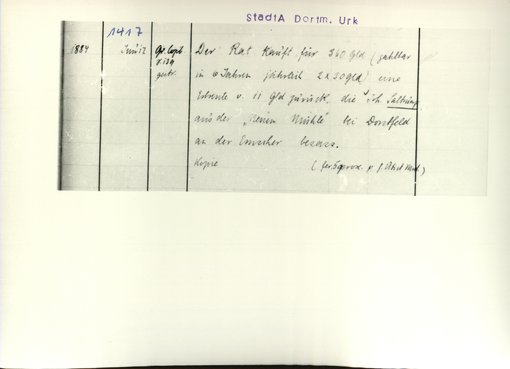 StadtA Dortm. Urk
1417
1884 Juni 12 Gr. Copb. Der Rat kauft für 360 Gld (zahlbar
in Jahren jährlich 2x30 Gld) eine
gestr.
Erbrente v. 11 Gld zurück, die Joh.
aus der "Neuen Mühle" bei Dorstfeld
an der Emscher besass.
Kopie